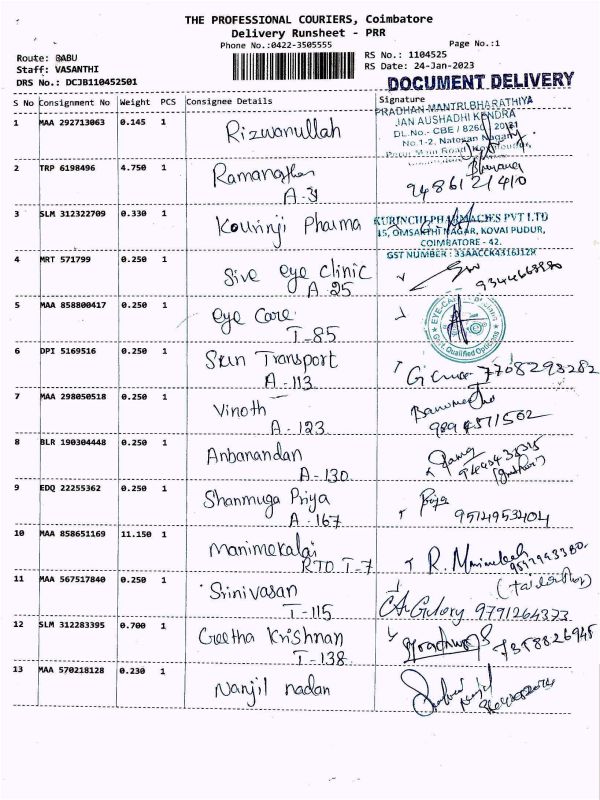 THE PROFESSIONAL COURIERS, Coimbatore
Delivery Runsheet - PRR
Phone No.:0422-3505555 Page No.:1
Route: BABU RS No.: 1104525
Staff: VASANTHI RS Date: 24-Jan-2023
DRS No.: DCJB110452501
DOCUMENT DELIVERY
S No Consignment No Weight PCS Consignee Details Signature
PRADHAN MANTRI BHARATHIYA
JAN AUSHADHI KENDRA
1 MAA 292713063 0.145 1 Rizwanullah
DL.No.- CBE / 8260
No.1-2, Natesan Nagar
2 TRP 6198496 4.750 1 Ramanathan
A-31
9486121410
3 SLM 312322709 0.330 1 Kourinji Pharma
KURINCHI PHARMACIES PVT LTD
15, OMSAKTHI NAGAR, KOVAI PUDUR,
COIMBATORE - 42.
GST NUMBER : 33AACCK4316J1ZR
4 MRT 571799 0.250 1 Sive eye clinic
A-25
5 MAA 858800417 0.250 1 eye Care
T-85
EYE-CARE
Govt. Qualified Opticians
6 DPI 5169516 0.250 1 Sun Transport
A-113
7708293282
7 MAA 298050518 0.250 1 Vinoth
A-123
9894571502
8 BLR 190304448 0.250 1 Anbanandan
A-130
9 EDQ 22255362 0.250 1 Shanmuga Priya
A-167
Priya
9514953404
10 MAA 858651169 11.150 1 Manimekalai
RTO T-7
R.
11 MAA 567517840 0.250 1 Srinivasan
T-115
9791264373
12 SLM 312283395 0.700 1 Geetha Krishnan
T-138
7358826945
13 MAA 570218128 0.230 1 Nanjil nadan